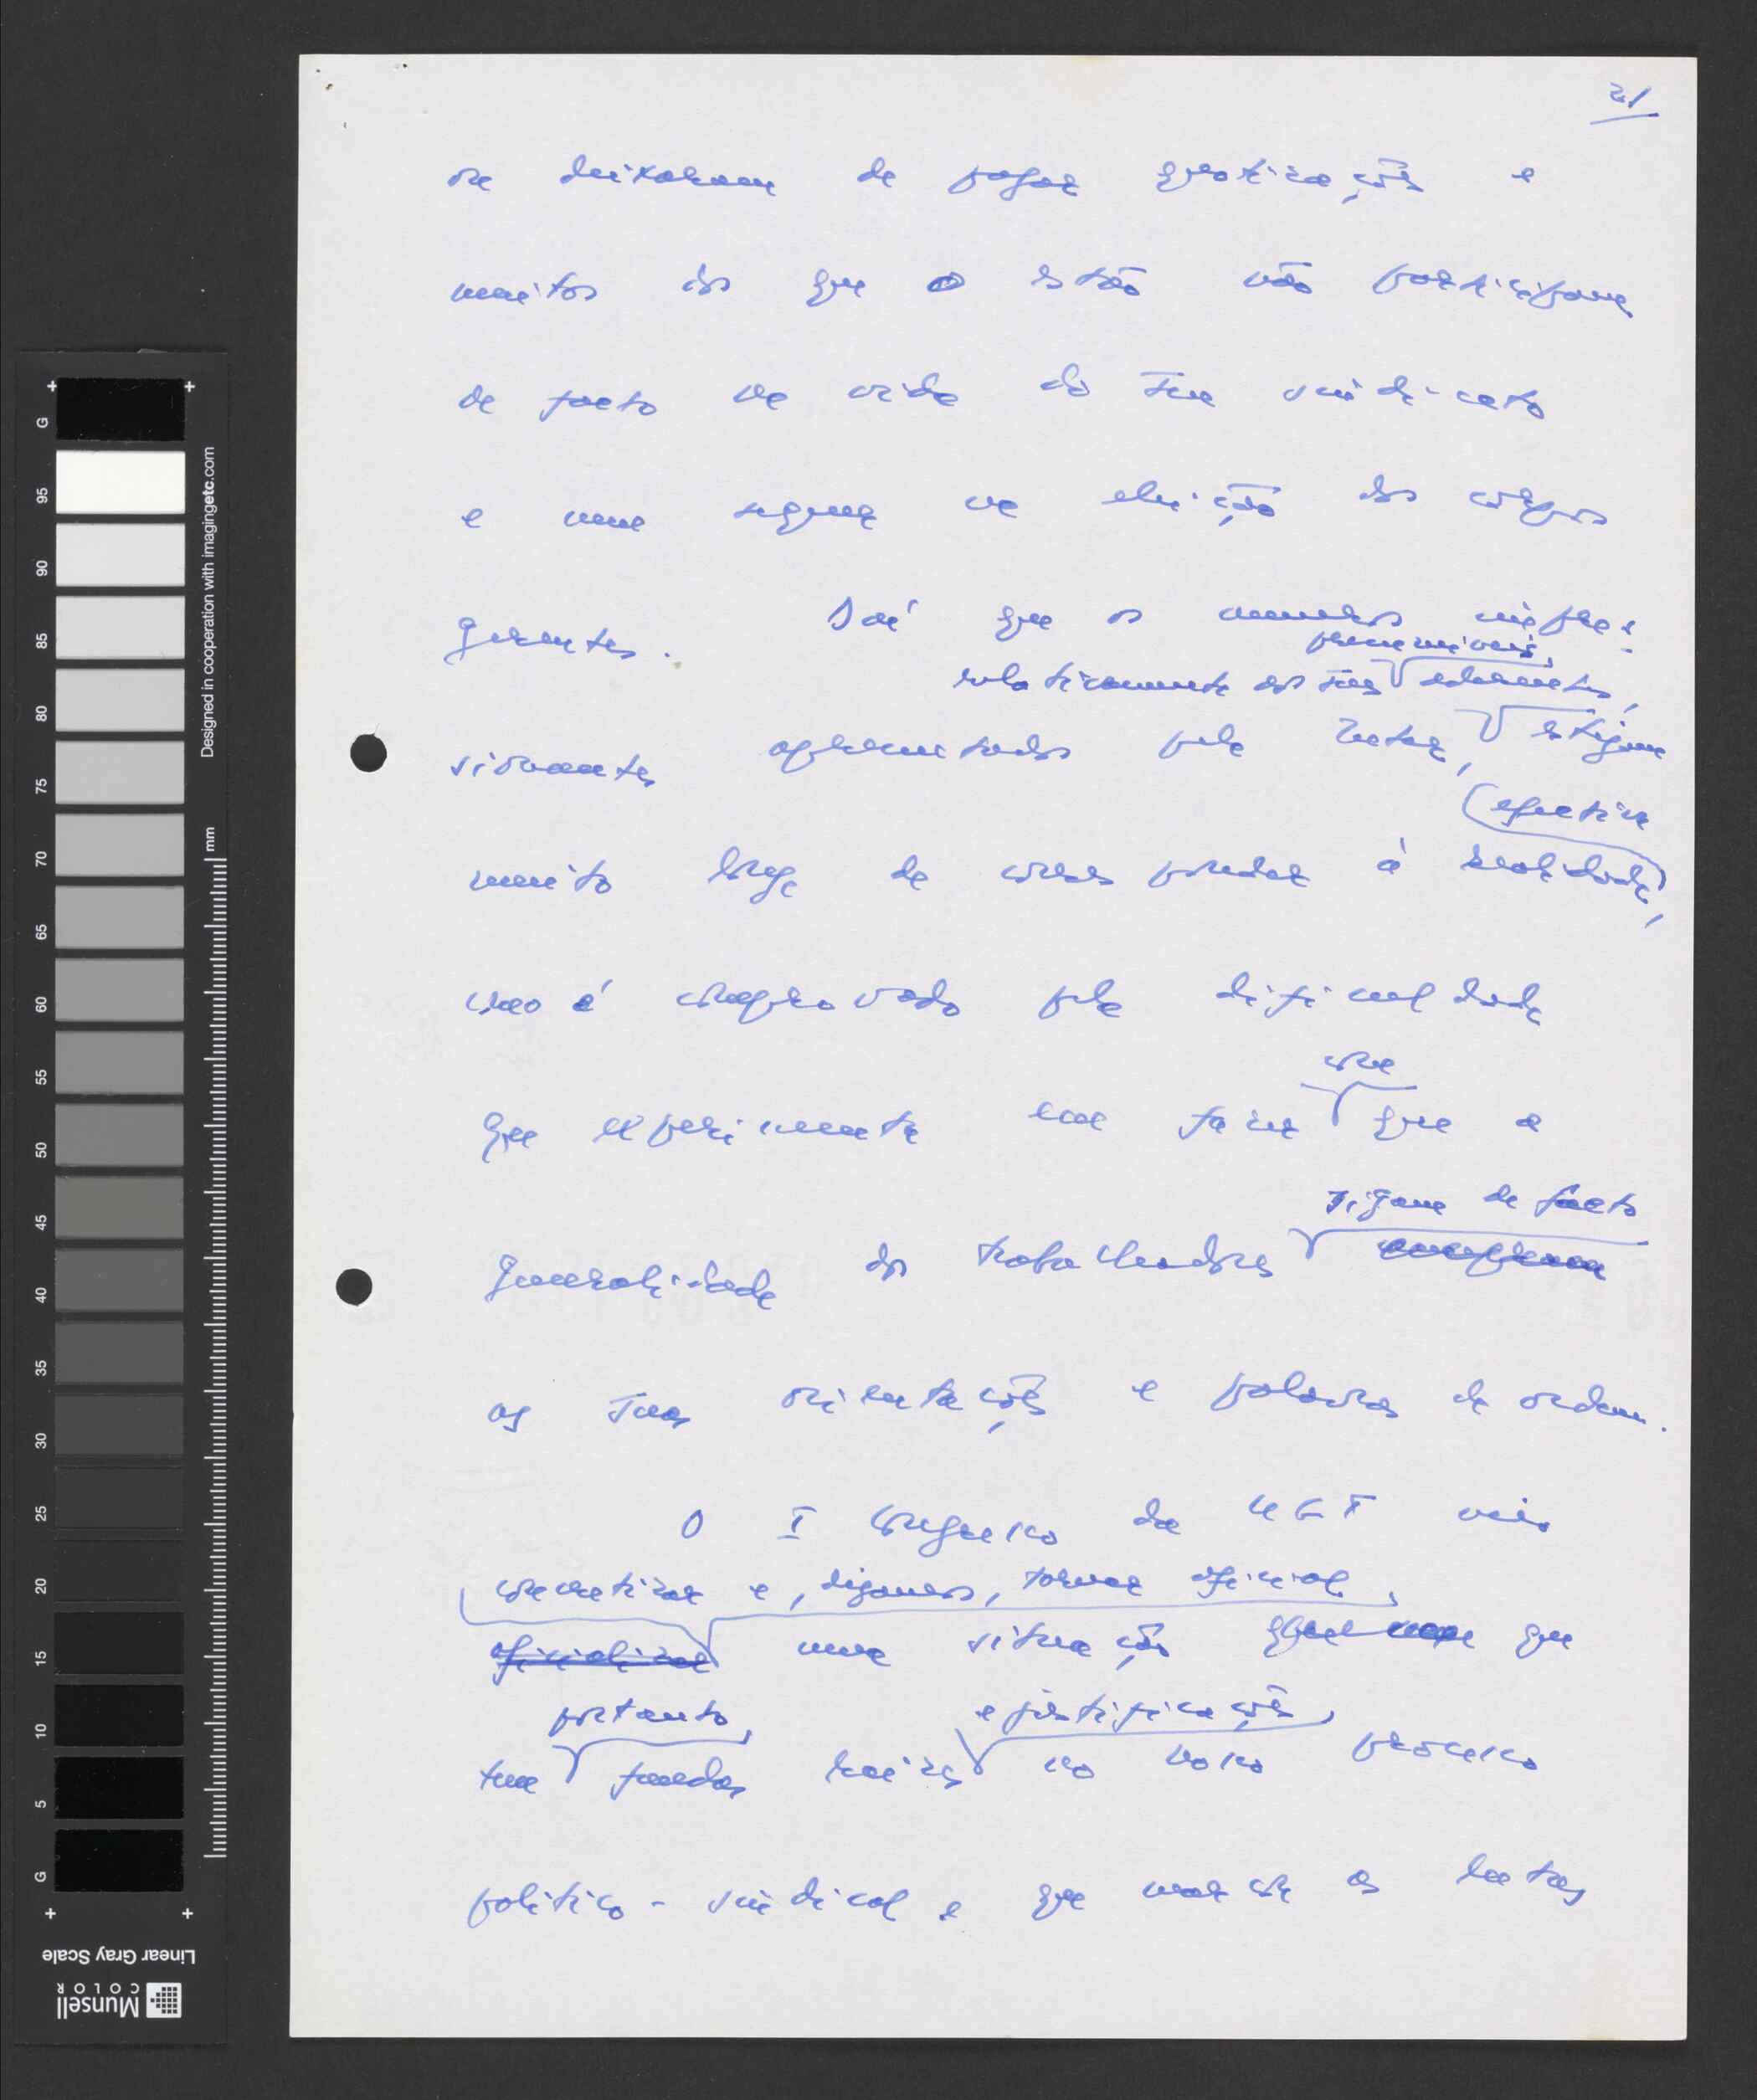 21
ou deixaram de pagar quotizações e
muitos dos que o estão não participam
de facto na vida do seu sindicato
e nem sequer na eleição dos corpos
gerentes. Daí que os números impres-
presumíveis,
relativamente aos seus aderentes,
sionantes apresentados pela Inter, estejam
(efectiva
muito longe de corresponder à realidade),
como é comprovado pela dificuldade
com
que experimenta em fazer que a
sigam de facto
generalidade dos trabalhadores
as suas orientações e palavras de ordem.
O I Congresso da UGT veio
concretizar e, digamos, tornar oficial,
oficializar uma situação que
portanto, e justificações,
tem fundas raízes no nosso processo
político-sindical e que marcou as lutas
Designed in cooperation with imagingetc.com
mm
G 95 90 85 80 75 70 65 60 55 50 45 40 35 30 25 20 15 10 5 G
Linear Gray Scale
Munsell
COLOR